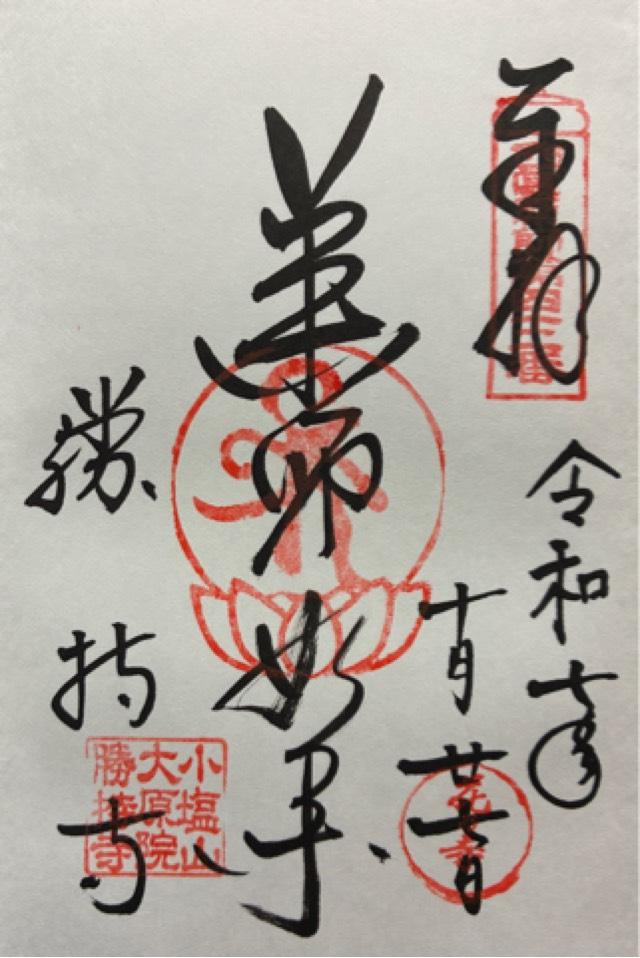 奉拝
令和七年
十月廿七日
薬師如来
勝持寺
小塩山
大原院
勝持寺